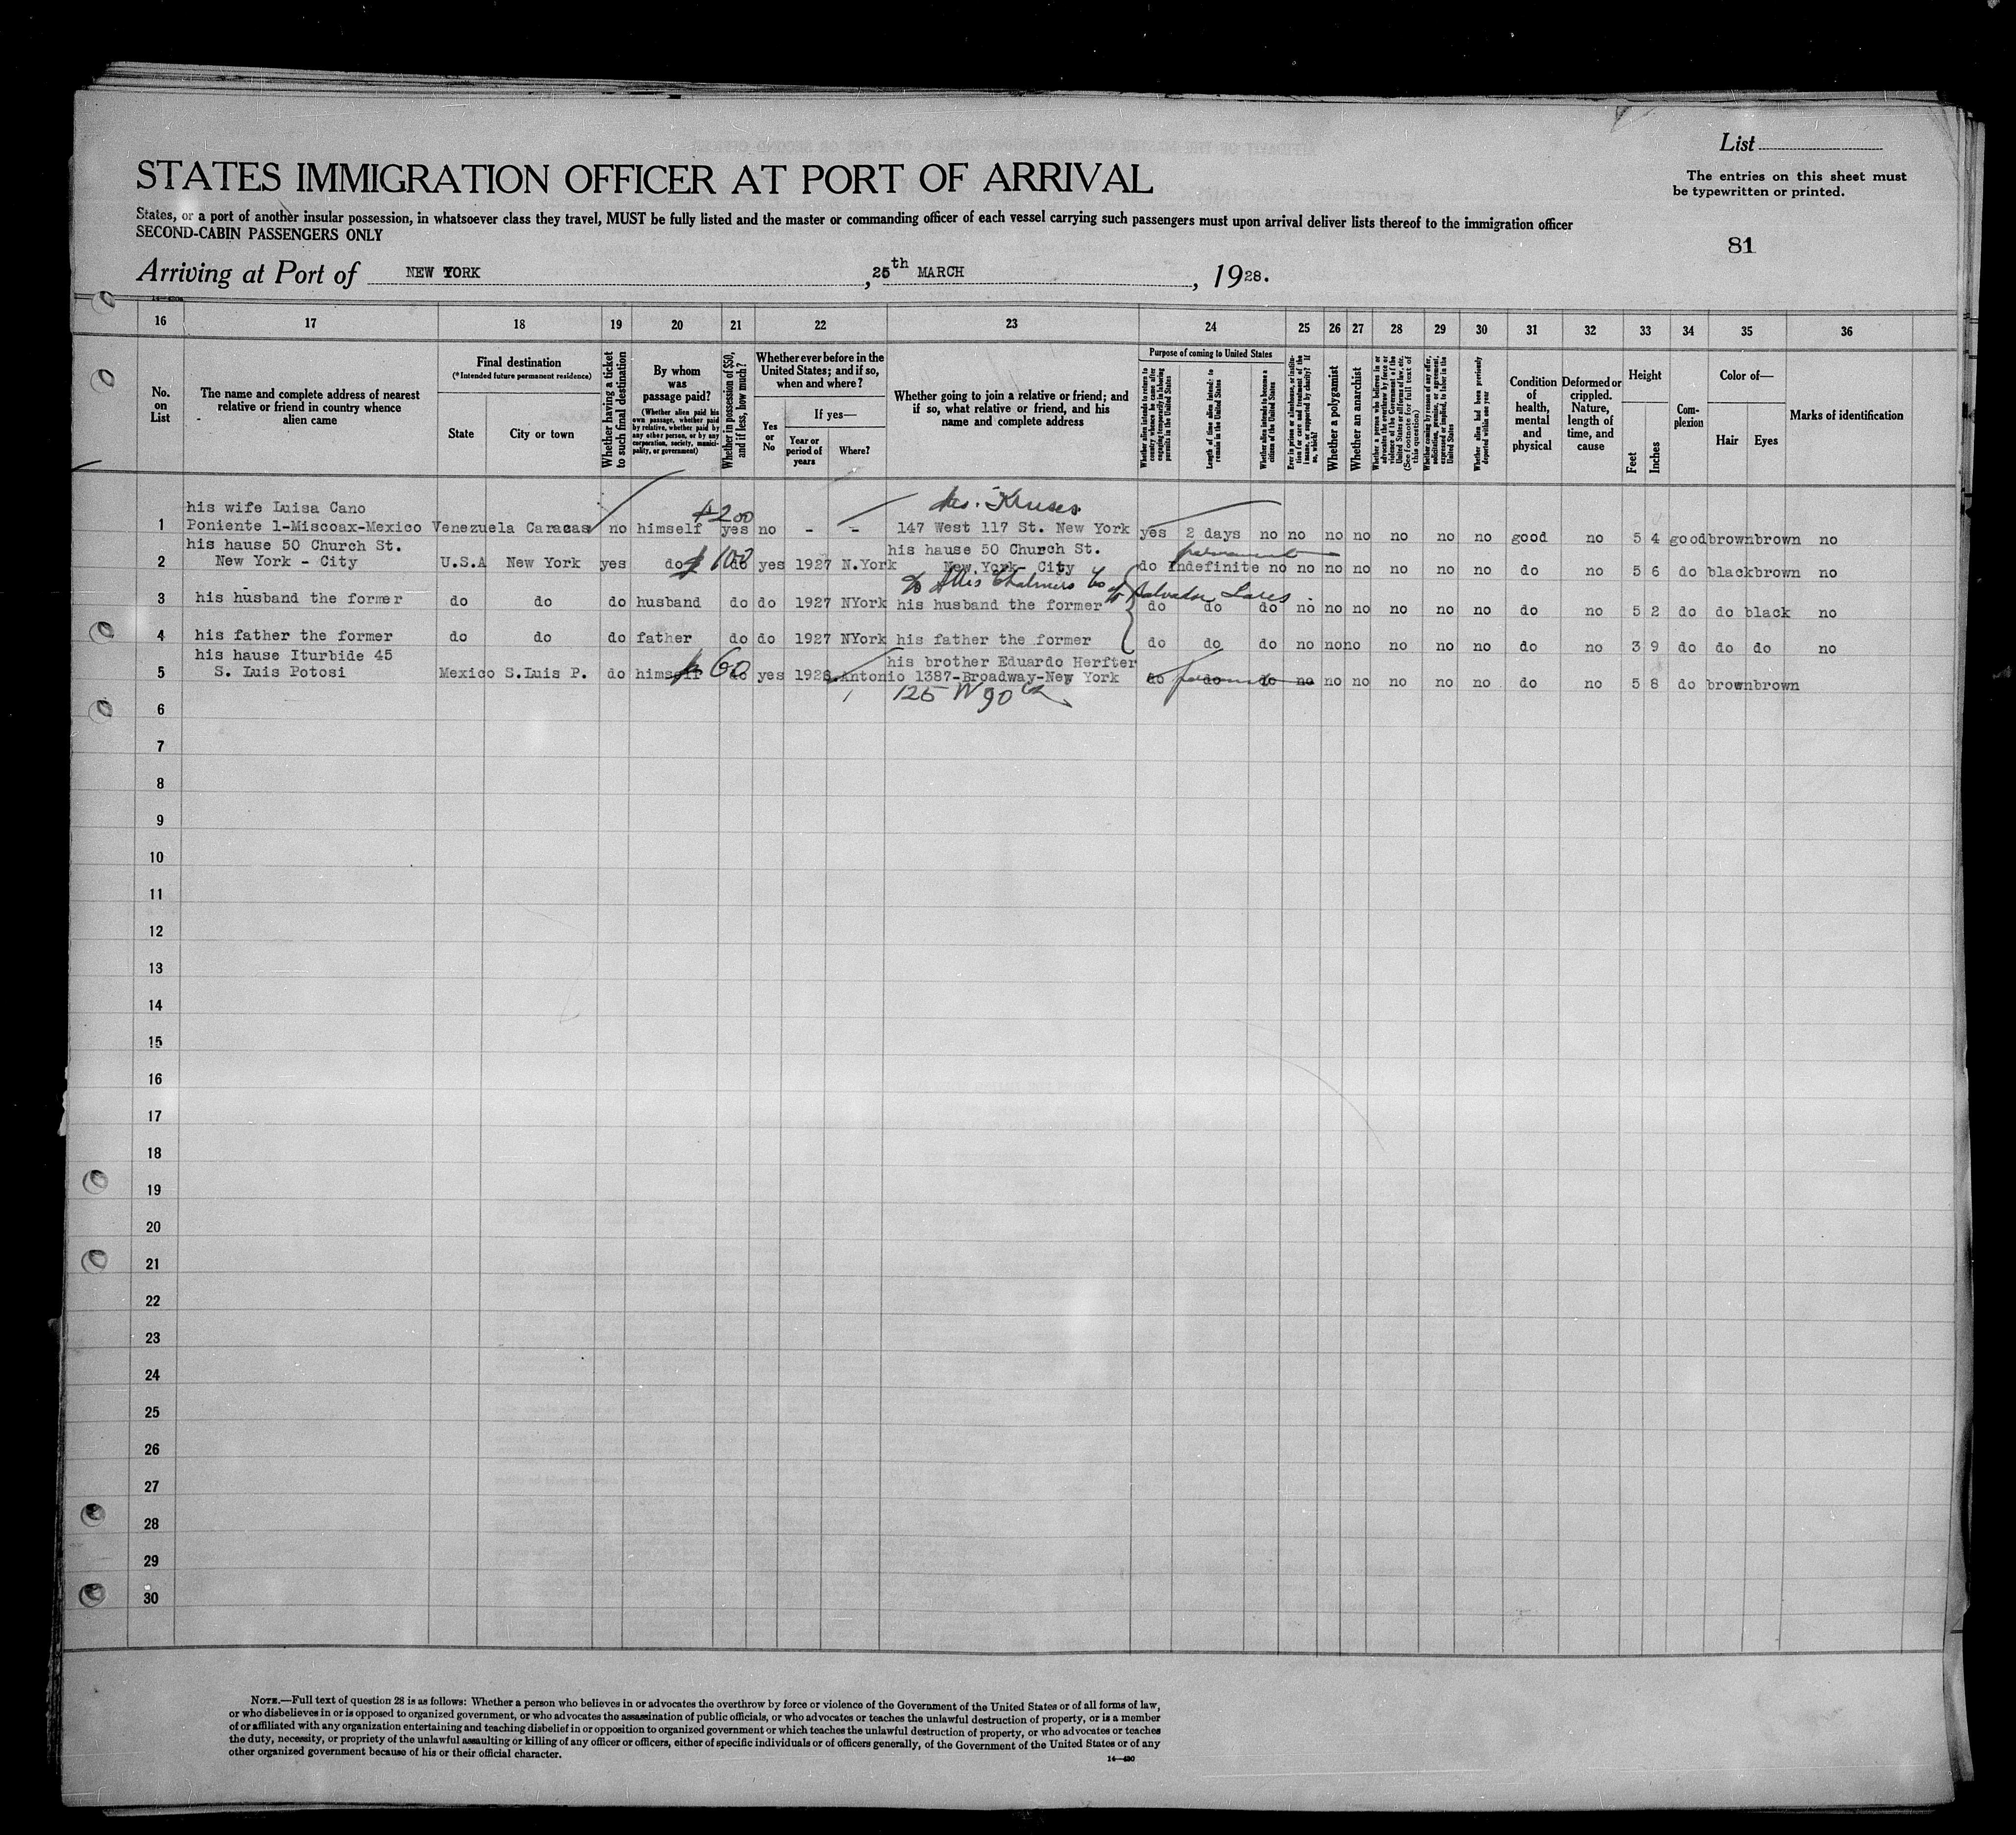 List
The entries on this sheet must
be typewritten or printed.
STATES IMMIGRATION OFFICER AT PORT OF ARRIVAL
States, or a port of another insular possession, in whatsoever class they travel, MUST be fully listed and the master or commanding officer of each vessel carrying such passengers must upon arrival deliver lists thereof to the immigration officer
SECOND-CABIN PASSENGERS ONLY
81
Arriving at Port of NEW YORK, 25th MARCH, 1928.
16 17 18 19 20 21 22 23 24 25 26 27 28 29 30 31 32 33 34 35 36
No. on List
The name and complete address of nearest relative or friend in country whence alien came
Final destination
(*Intended future permanent residence)
State
City or town
Whether having a ticket to such final destination
By whom was passage paid?
(Whether alien paid his own passage, whether paid by relative, whether paid by any other person, or by any corporation, society, municipality, or government)
Whether in possession of $50, and if less, how much?
Whether ever before in the United States; and if so, when and where?
Yes or No
If yes—
Year or period of years
Where?
Whether going to join a relative or friend; and if so, what relative or friend, and his name and complete address
Purpose of coming to United States
Whether alien intends to return to country whence he came after engaging temporarily in laboring pursuits in the United States
Length of time alien intends to remain in the United States
Whether alien intends to become a citizen of the United States
Ever in prison or almshouse, or institution for care and treatment of the insane, or supported by charity? If so, which?
Whether a polygamist
Whether an anarchist
Whether a person who believes in or advocates the overthrow by force or violence of the Government of the United States or all forms of law, etc. (See footnote for full text of this question)
Whether coming by reason of any offer, solicitation, promise, or agreement, expressed or implied, to labor in the United States
Whether alien had been previously deported within one year
Condition of health, mental and physical
Deformed or crippled. Nature, length of time, and cause
Height
Feet
Inches
Complexion
Color of—
Hair
Eyes
Marks of identification
his wife Luisa Cano $200 Kruses
1 Poniente 1-Miscoax-Mexico Venezuela Caracas no himself yes no - - 147 West 117 St. New York yes 2 days no no no no no no no good no 5 4 good brown brown no
his hause 50 Church St. his hause 50 Church St. permanent
2 New York - City U.S.A New York yes do $100 do yes 1927 N.York New York - City do Indefinite no no no no no no no do no 5 6 do black brown no
% Allis Chalmers Co % Salvador Lares
3 his husband the former do do do husband do do 1927 NYork his husband the former do do do no no no no no no do no 5 2 do do black no
4 his father the former do do do father do do 1927 NYork his father the former do do do no no no no no no do no 3 9 do do do no
his hause Iturbide 45 his brother Eduardo Herfter
5 S. Luis Potosi Mexico S.Luis P. do himself $60 do yes 1928 Antonio 1387-Broadway-New York do do do no no no no no no do no 5 8 do brown brown
125 W 90
6
7
8
9
10
11
12
13
14
15
16
17
18
19
20
21
22
23
24
25
26
27
28
29
30
NOTE.—Full text of question 28 is as follows: Whether a person who believes in or advocates the overthrow by force or violence of the Government of the United States or of all forms of law,
or who disbelieves in or is opposed to organized government, or who advocates the assassination of public officials, or who advocates or teaches the unlawful destruction of property, or is a member
of or affiliated with any organization entertaining and teaching disbelief in or opposition to organized government or which teaches the unlawful destruction of property, or who advocates or teaches
the duty, necessity, or propriety of the unlawful assaulting or killing of any officer or officers, either of specific individuals or of officers generally, of the Government of the United States or of any
other organized government because of his or their official character.
14—430